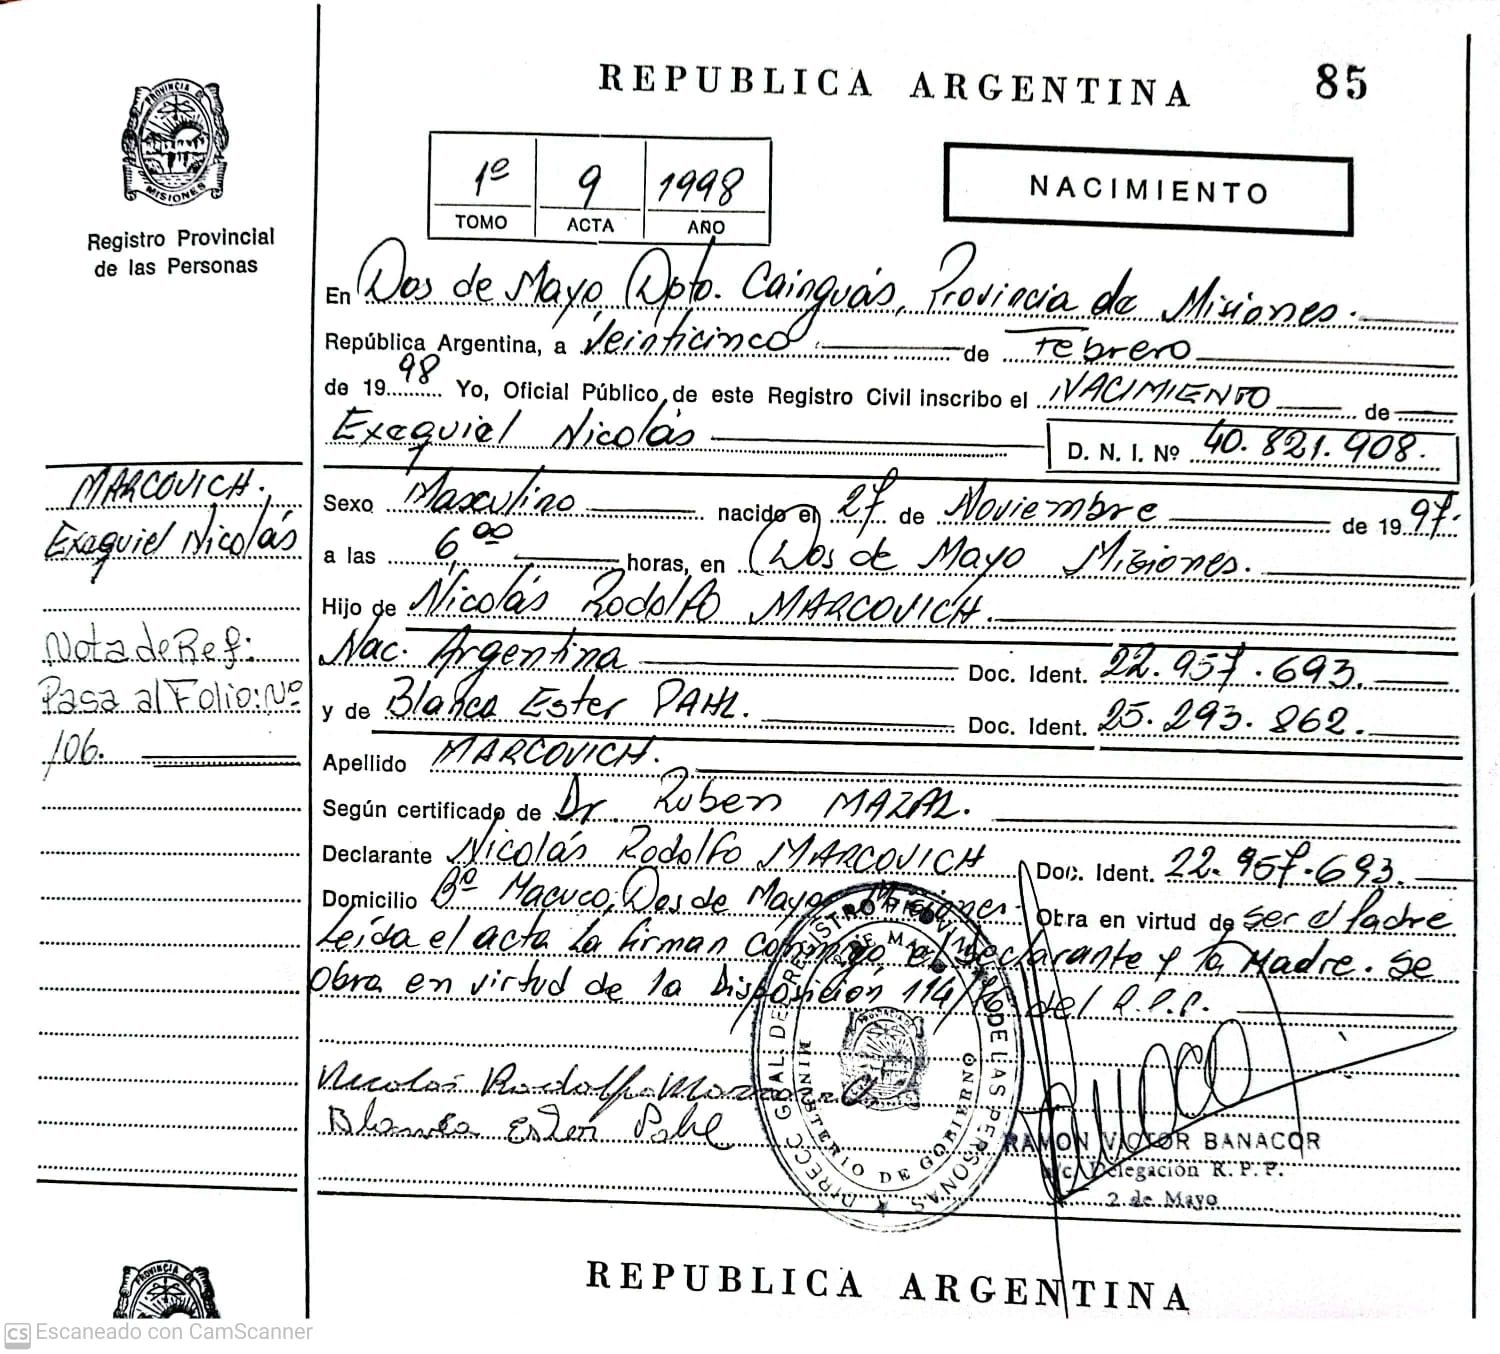 REPUBLICA ARGENTINA 85
PROVINCIA DE
MISIONES
Registro Provincial
de las Personas
1º 9 1998
TOMO ACTA AÑO
NACIMIENTO
En Dos de Mayo, Dpto. Cainguás, Provincia de Misiones.
República Argentina, a Veinticinco de Febrero
de 1998 Yo, Oficial Público de este Registro Civil inscribo el NACIMIENTO de
Exequiel Nicolás D. N. I. Nº 40.821.908.
MARCOVICH.
Exequiel Nicolás
Nota de Ref:
Pasa al Folio: Nº
106.
Sexo Masculino nacido el 27 de Noviembre de 1997.
a las 6,00 horas, en Dos de Mayo Misiones.
Hijo de Nicolás Rodolfo MARCOVICH.
Nac. Argentina Doc. Ident. 22.957.693.
y de Blanca Ester PAHL. Doc. Ident. 25.293.862.
Apellido MARCOVICH.
Según certificado de Dr. Ruben MAZAL.
Declarante Nicolás Rodolfo MARCOVICH Doc. Ident. 22.957.693.
Domicilio Bº Macuco, Dos de Mayo Misiones. Obra en virtud de ser el Padre
Leída el acta la firman conmigo, el declarante y la Madre. Se
Obra en virtud de la Disposición 114/ del R.P.P.
Nicolás Rodolfo
Blanca Ester Pahl
DIRECC. GRAL. DE REGISTRO PROVINCIAL DE LAS PERSONAS
2 DE MAYO
MINISTERIO DE GOBIERNO
RAMON VICTOR BANACOR
a/c. Delegación R. P. P.
2 de Mayo
REPUBLICA ARGENTINA
PROVINCIA DE
CS Escaneado con CamScanner